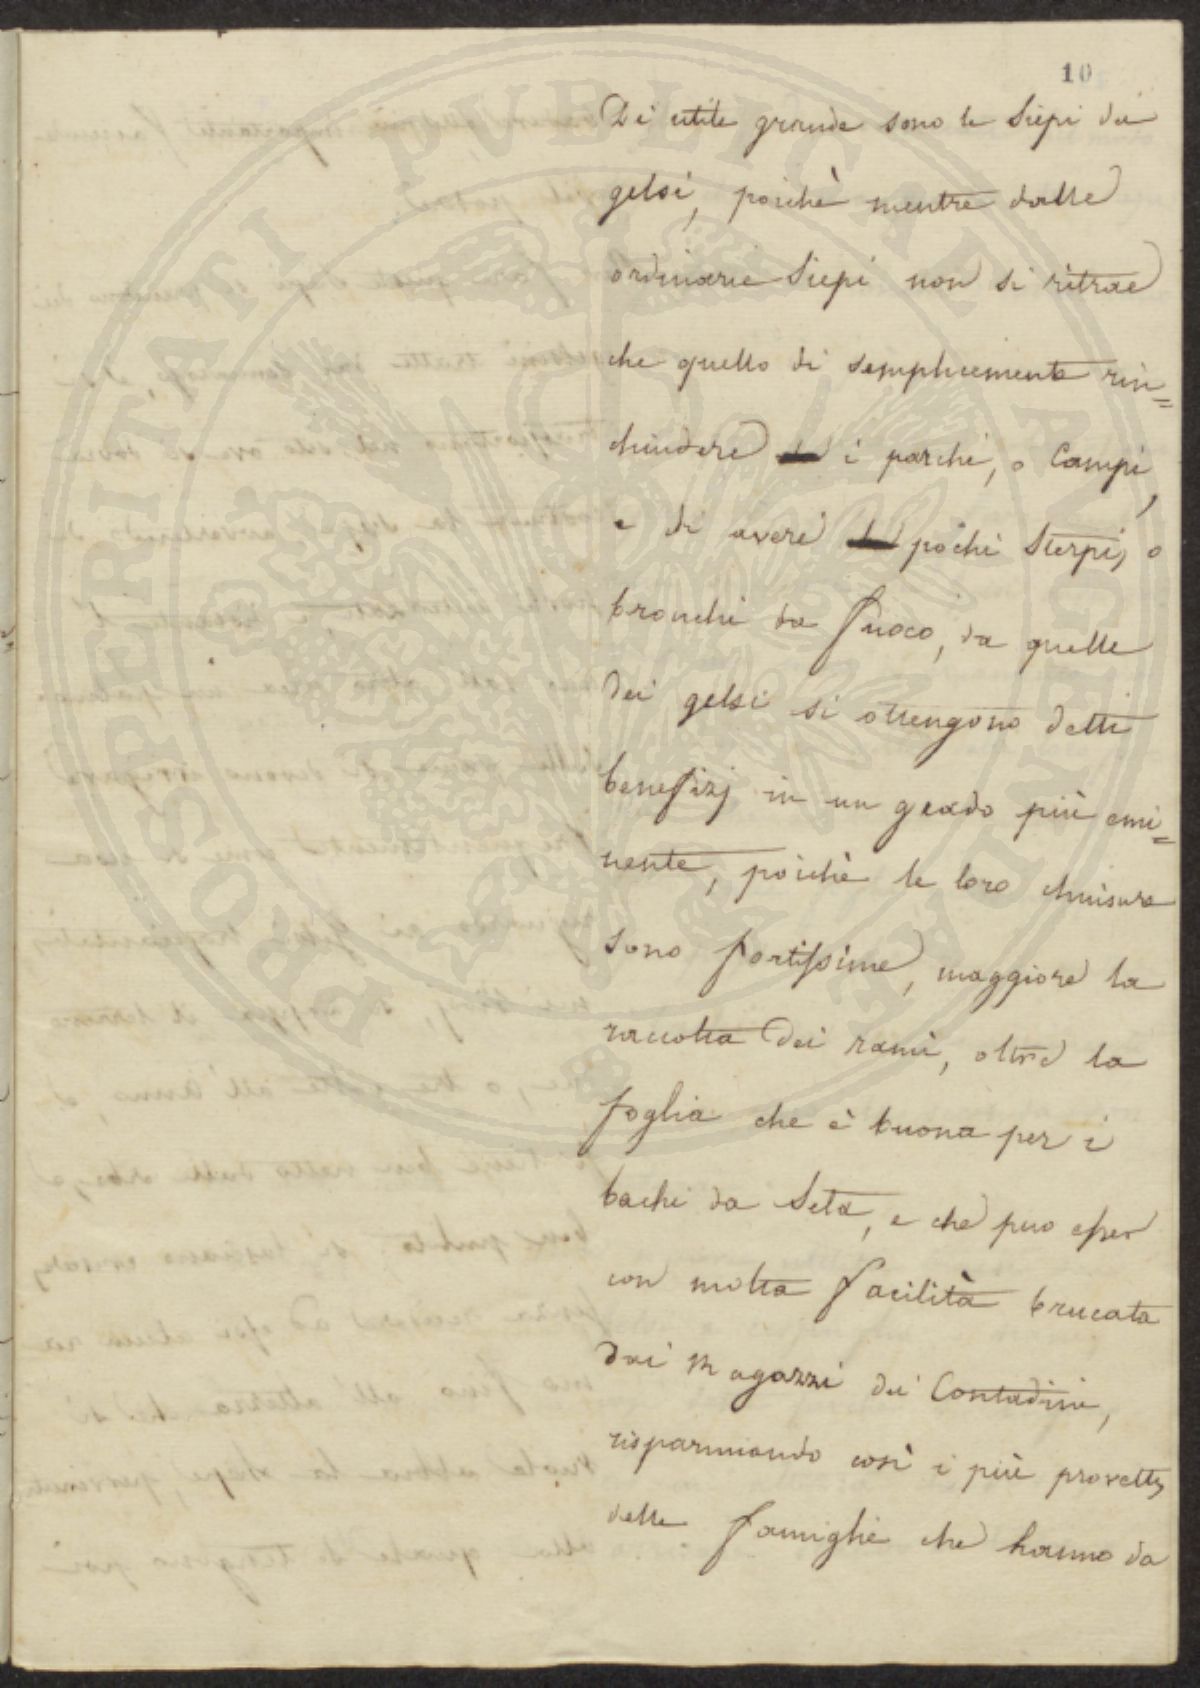 10
Di utile grande sono le Siepi di
gelsi, poichè mentre dalle
ordinarie Siepi non si ritrae
che quello di semplicemente rin=
chiudere i parchi, o Campi,
e di avere pochi Sterpi, o
bronchi da fuoco, da quelle
dei gelsi si ottengono detti
benefizj in un grado più emi=
nente, poichè le loro chiusure
sono fortissime, maggiore la
raccolta dei rami, oltre la
foglia che è buona per i
bachi da Seta, e che puo esser
con molta facilità brucata
dai Ragazzi dei Contadini,
risparmiando così i più provetti
delle famiglie che hanno da
PROSPERITATI PUBLICAE AUGENDAE